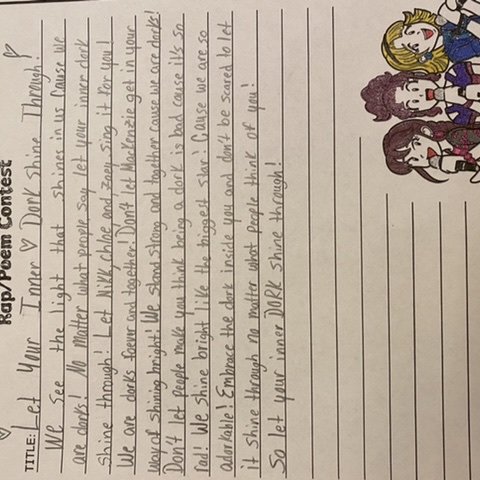 Rap/Poem Contest
TITLE: Let Your Inner ♡ Dork shine Through!
We see the light that shines in us Cause we
are dorks! No matter what people say let your inner dork
Shine through! Let Nikki, chloe and zoey sing it for you!
We are dorks forevr and together! Don't let Mackenzie get in your
way of shining bright! We stand strong and together cause we are dorks!
Don't let people make you think being a dork is bad cause it's so
rad! We shine bright like the biggest star! Cause we are so
adorkable! Embrace the dork inside you and don't be scared to let
it shine through no matter what people think of you!
So let your inner DORK shine through!